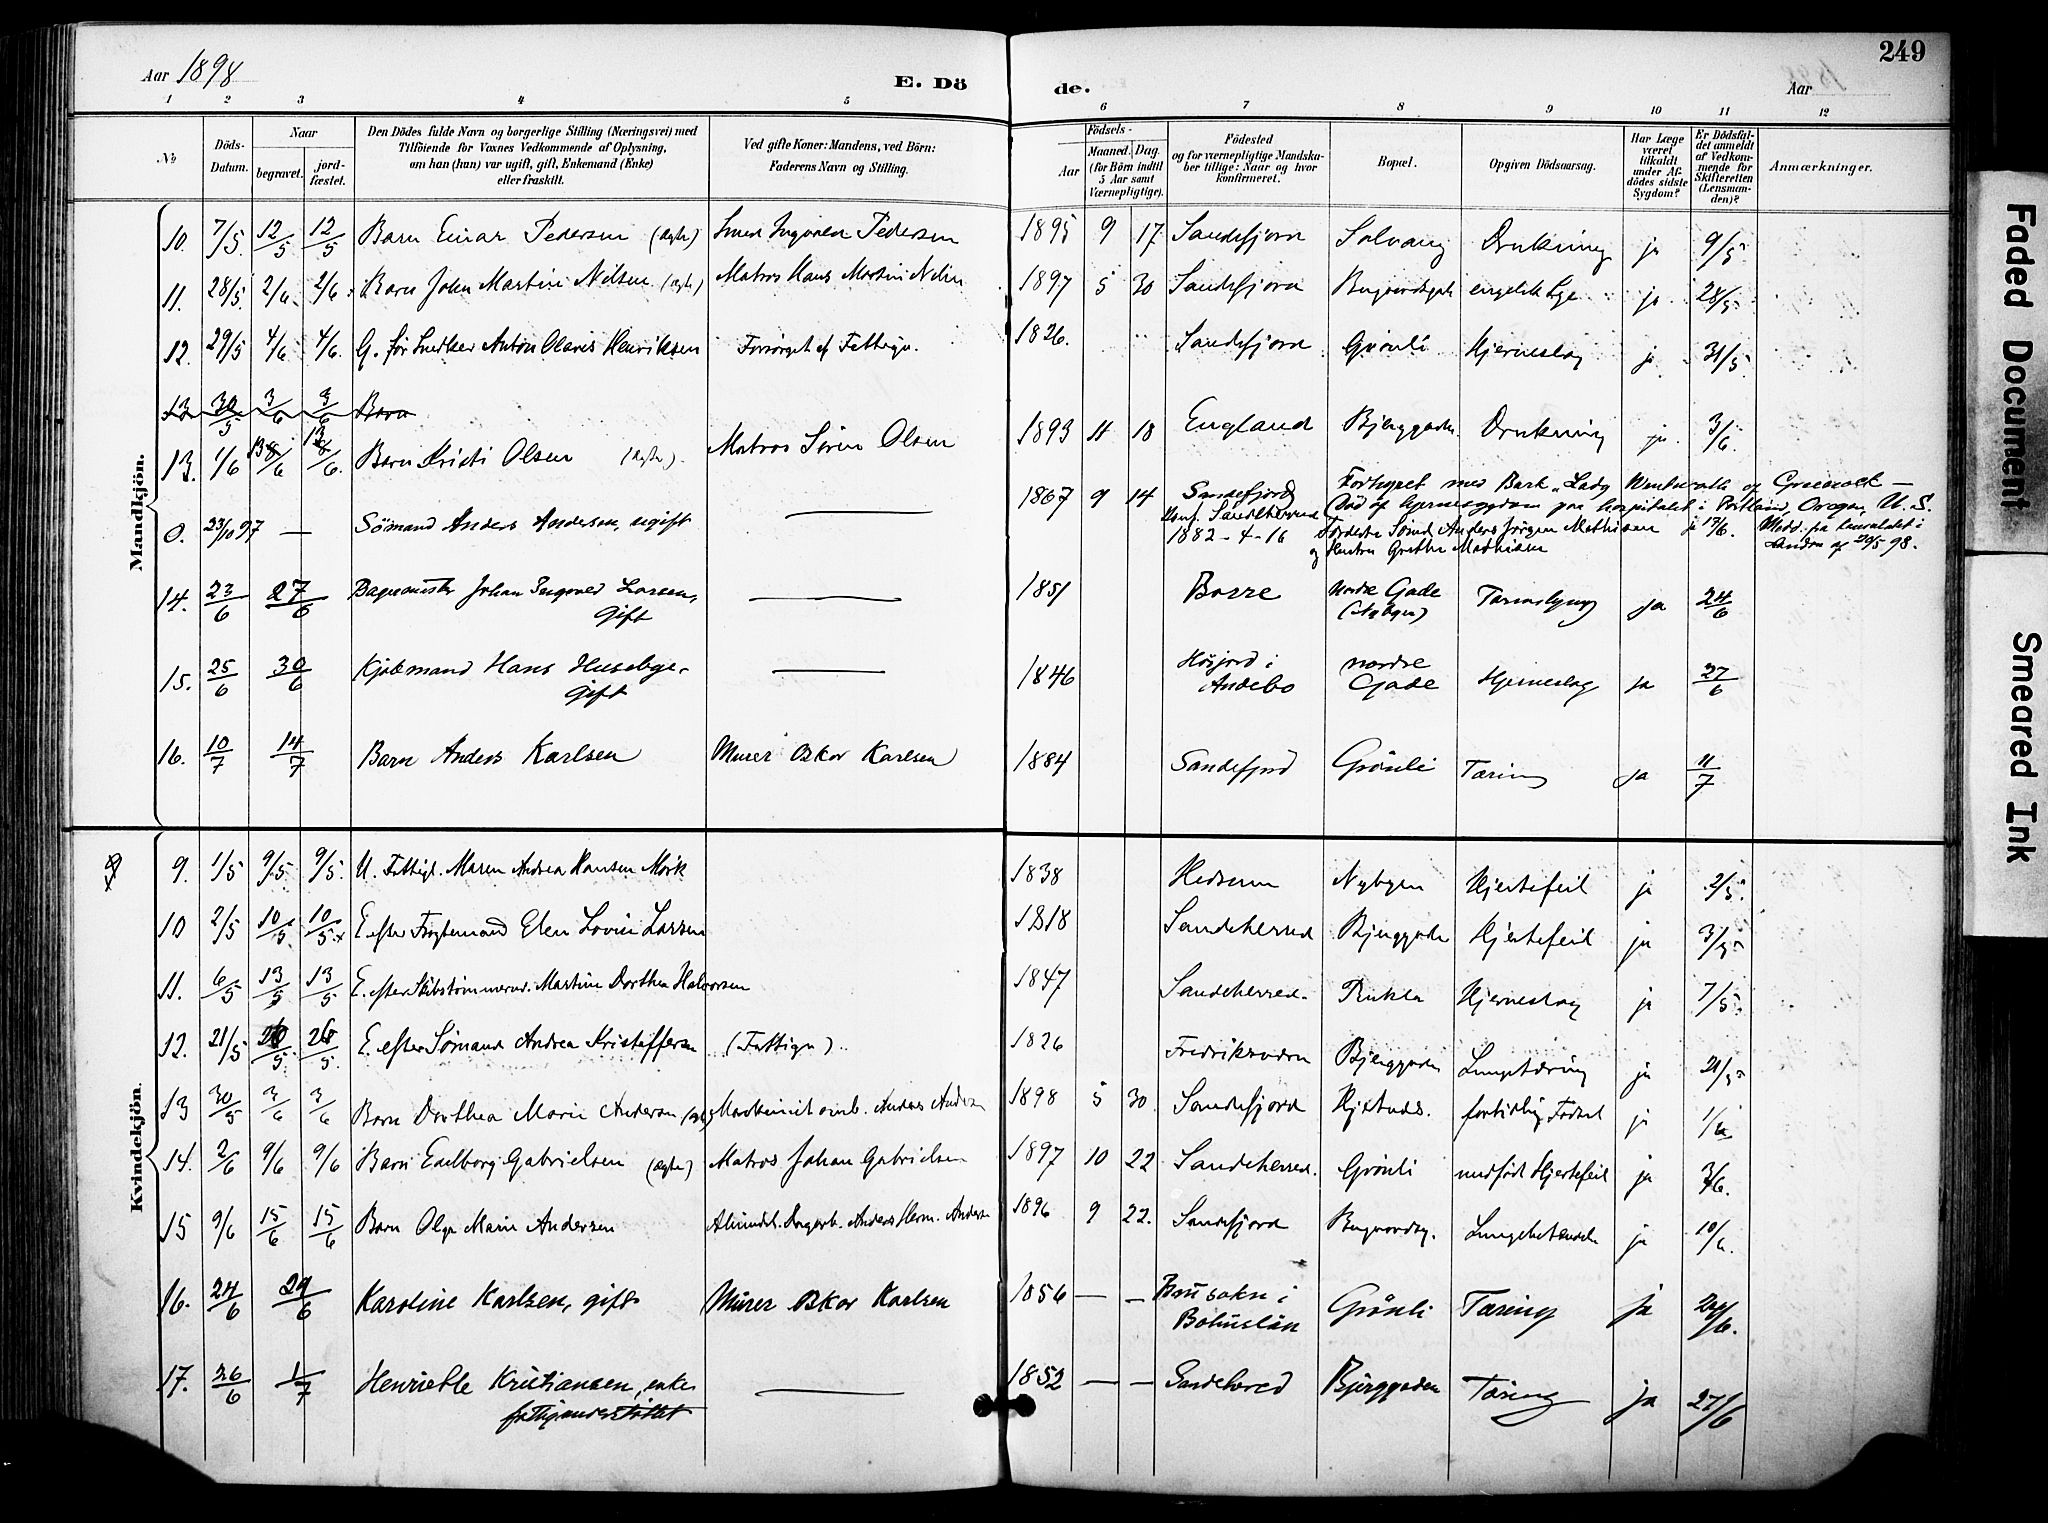 Aar 1898
E. Døde.
Aar
249
1 2 3 4 5 6 7 8 9 10 11 12
No
Døds-Datum.
Naar
begravet.
jord-fæstet.
Den Dødes fulde Navn og borgerlige Stilling (Næringsvei) med
Tilføiende for Voxnes Vedkommende af Oplysning,
om han (hun) var ugift, gift, Enkemand (Enke)
eller fraskilt.
Ved gifte Koner: Mandens, ved Børn:
Faderens Navn og Stilling.
Fødsels-
Aar
Maaned. Dag.
(for Børn indtil
5 Aar samt
Værnepligtige).
Fødested
og for værnepligtige Mandska-
ber tillige: Naar og hvor
konfirmeret.
Bopæl.
Opgiven Dødsaarsag.
Har Læge
været
tilkaldt
under Af-
dødes sidste
Sygdom?
Er Dødsfal-
det anmeldt
af Vedkom-
mende for
Skifteretten
(Lensman-
den)?
Anmærkninger.
Mandkjøn.
10. 7/5 12/5 12/5 Barn Einar Pedersen (ægte) Smed Ingvald Pedersen 1895 9 17 Sandefjord Solvang Drukning ja 9/5
11. 28/5 2/6 2/6 Barn John Martin Nilsen (ægte) Matros Hans Martin Nilsen 1897 5 30 Sandefjord Bugaardsgade engelsk Syge ja 28/5
12. 29/5 4/6 4/6. G. før Snedker Anton Olavis Henriksen Forsørget af Fattigv. 1826. Sandefjord Grønli Hjerneslag ja 31/5
13 30/5 3/6 3/6 Barn
13. 1/6 13/6 13/6 Barn Kristi Olsen (ægte) Matros Søren Olsen 1893 11 18 England Bjerggaden Drukning ja 3/6
0. 23/10 97 — Sømand Anders Andersen, ugift — 1867 9 14 Sandefjord
Konf. Sandeherred
1882-4-16
Forhyret med Bark "Lady Wentworth" af Greenock —
Død af hjernesygdom paa hospitalet i Portland, Oregon, U. S.
Forældre Sømd Anders Jørgen Mathisen ja 17/6. Medd. fra konsulatet i
og Hustru Grethe Mathisen London af 20/5 98.
14. 23/6 27/6 Bagermester Johan Ingvald Larsen,
gift — 1851 Borre Nordre Gade
(Nybyen) Tarmslyng ja 24/6
15. 25/6 30/6 Kjøbmand Hans Huseby,
gift — 1846 Høijord i
Andebo nordre
Gade Hjerneslag ja 27/6
16. 10/7 14/7 Barn Anders Karlsen Murer Oskar Karlsen 1884 Sandefjord Grönli Tæring ja 11/7
Kvindekjøn.
9. 1/5 9/5 9/5. U. Fattigl. Maren Andrea Hansen Mørk 1838 Hedrum Nybyen Hjertefeil ja 2/5
10 2/5 10/5 10/5 E. efter Fragtemand Elen Lovise Larsen 1818 Sandeherred Bjerggaden Hjertefeil ja 3/5
11. 6/5 13/5 13/5 E. efter Skibstømmerm. Martine Dorthea Halvorsen 1847 Sandeherred. Pukla Hjerneslag ja 7/5
12. 21/5 26/5 26/5. E. efter Sømand Andrea Kristoffersen (Fattigv) 1826 Fredriksværn Bjerggaden Lungetæring ja 21/5
13 30/5 3/6 3/6 Barn Dorthea Marie Andersen (ægte) Maskinist omb. Anders Andersen 1898 5 30. Sandefjord Hjertnes. fortidlig Fødsel ja 1/6
14. 2/6 9/6 9/6 Barn Edlborg Gabrielsen (ægte) Matros Johan Gabrielsen 1897 10 22 Sandeherred. Grönli medfødt Hjertefeil ja 3/6.
15 9/6 15/6 15/6 Barn Olga Marie Andersen Almindel. Dagarb. Anders Herm. Andersen 1896 9 22. Sandefjord Bugaardsg. Lungebetændelse ja 10/6.
16. 24/6 29/6 Karoline Karlsen, gift Murer Oskar Karlsen 1856 — — sokn i
Bohuslän Grönli Tæring ja 26/6.
17. 26/6 1/7 Henriette Kristiansen, enke
fattigunderstøttet — 1852 — — Sandeherred Bjerggaden Tæring ja 27/6
Faded Document
Smeared Ink